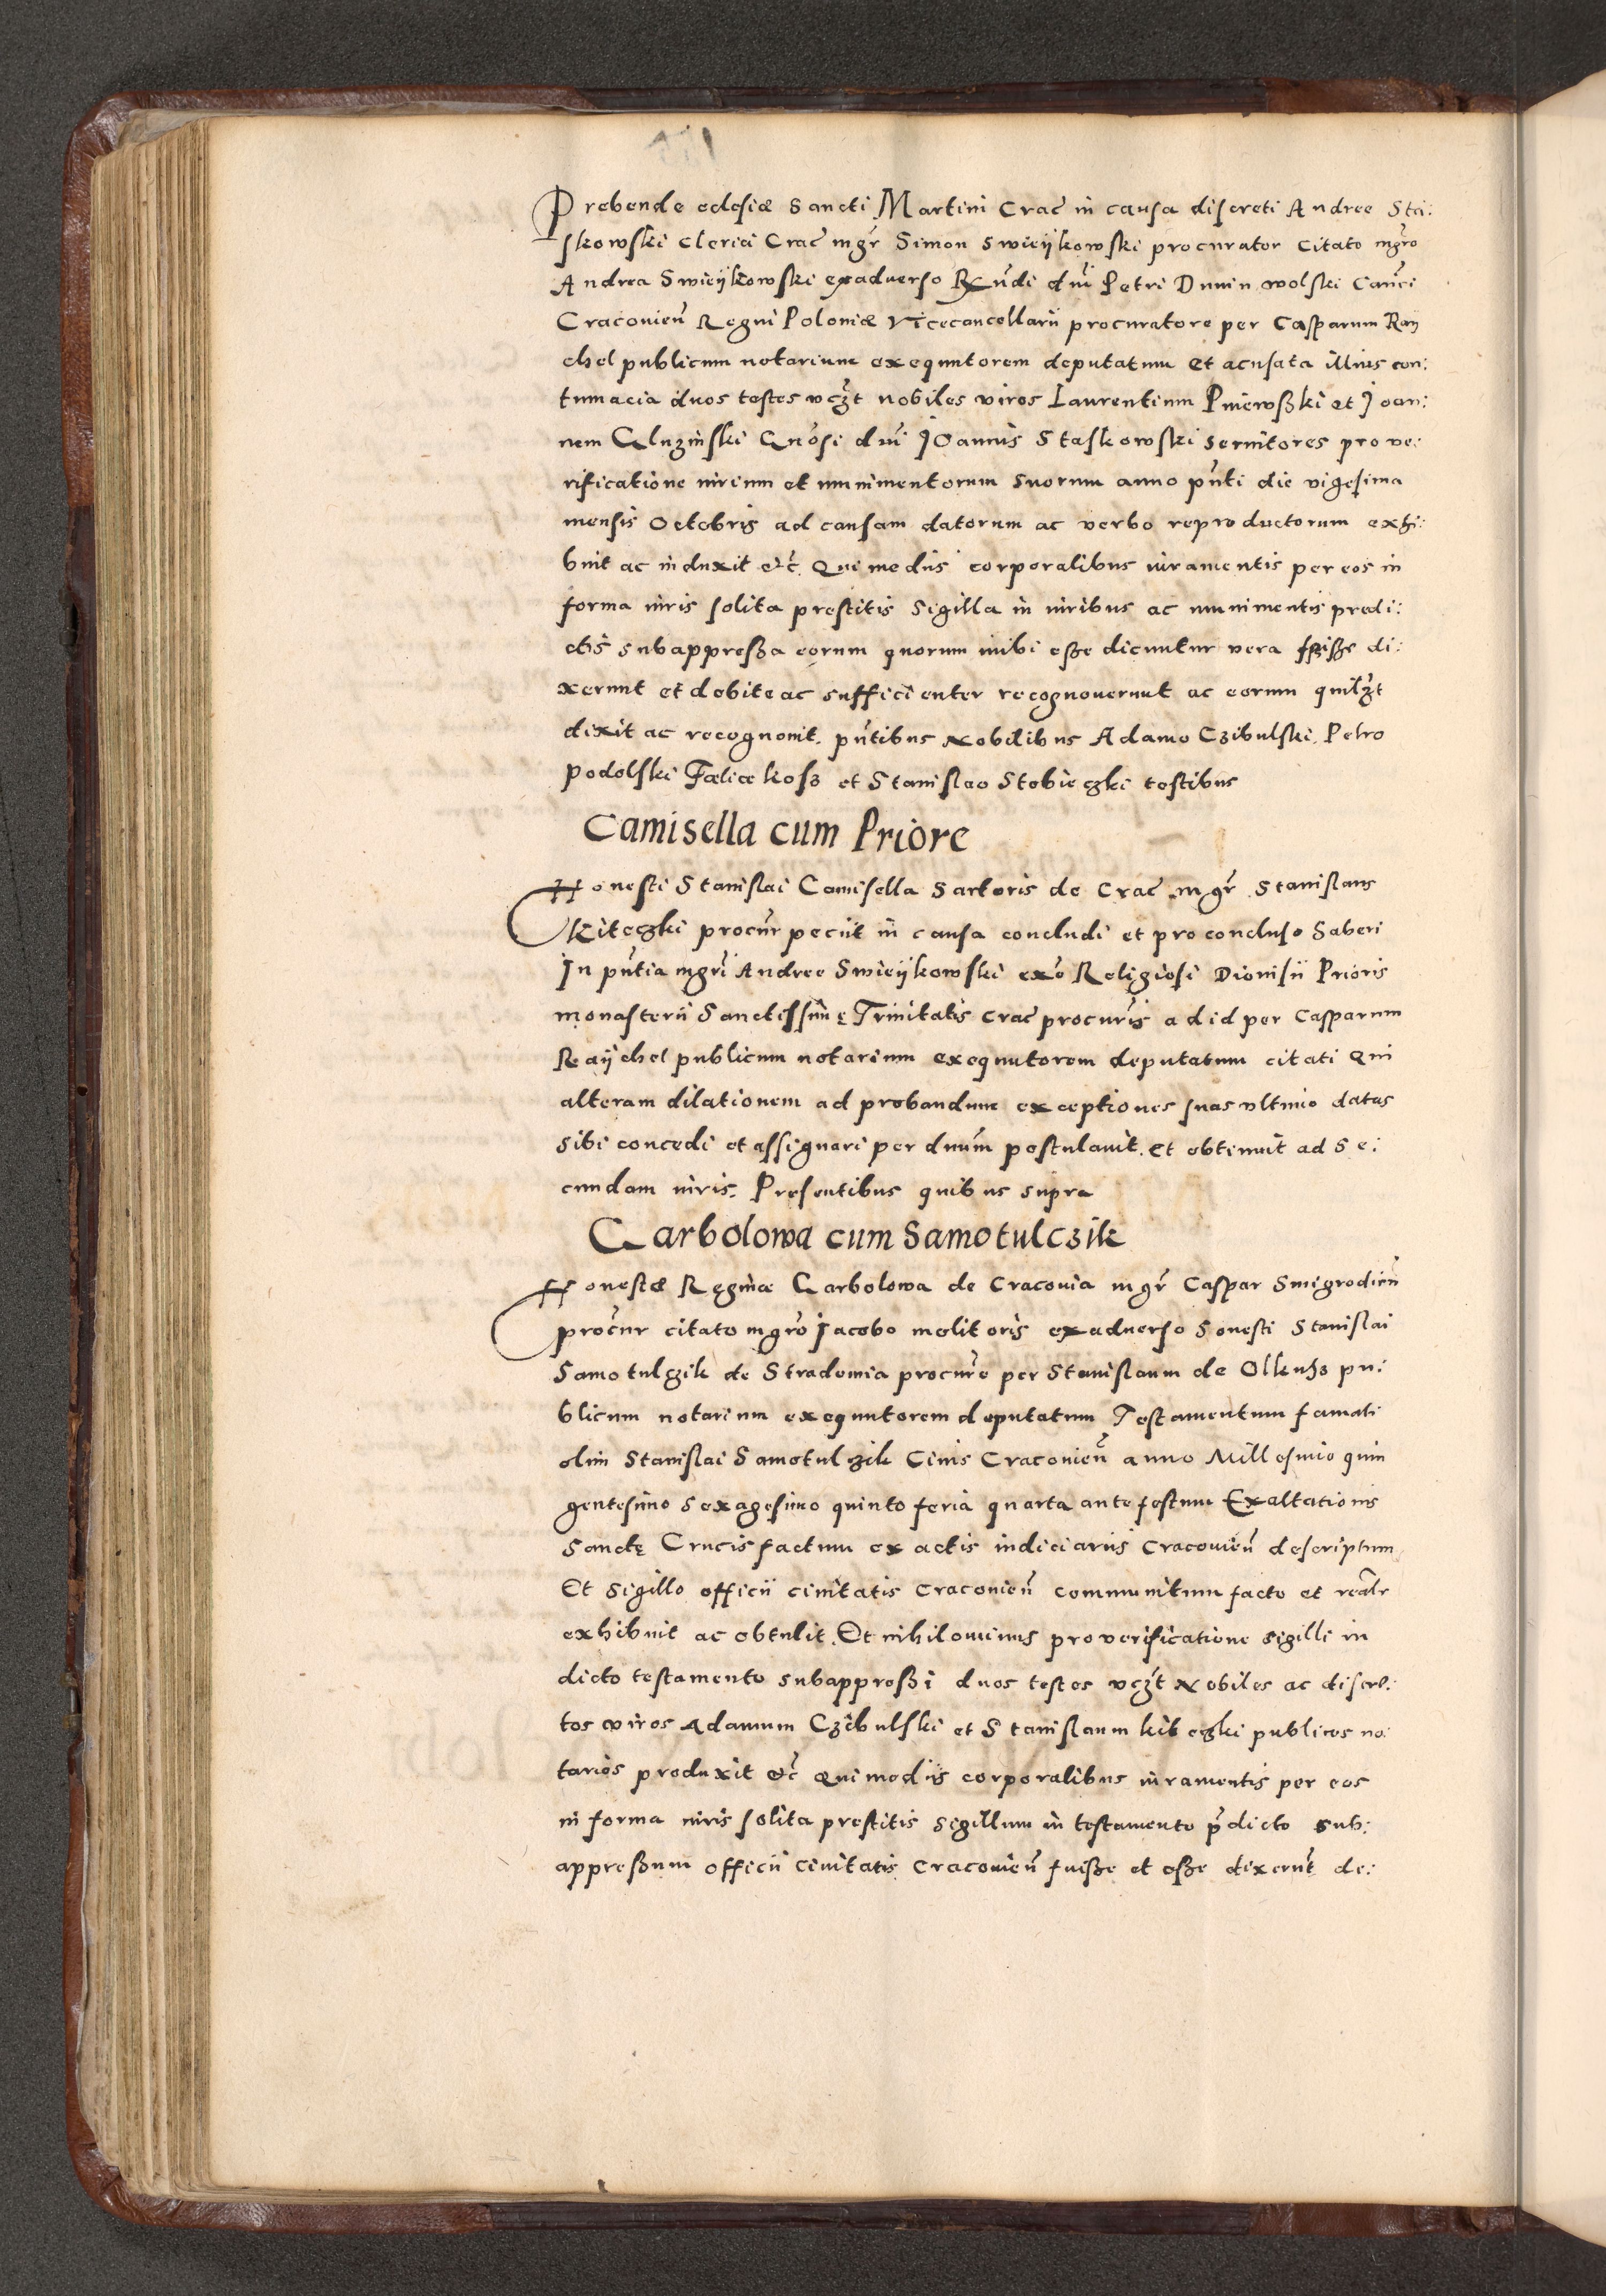 Prebende eclesiæ Sancti Martini Crac̃ in causa discreti Andree Sta:
skowski Clerici Crac̃ mgr̃ Simon Swieÿkowski procurator citato mgr̃o
Andrea Swieÿkowski exadverso Rx̃ndi dñi Petri Dunin wolski Cañci
Craconieñ Regni Poloniæ vicecancellarii procuratore per Casparum Raÿ
chel publicum notarium exequutorem deputatum et acusata illius con:
tumacia duos testes vcz̃t nobiles viros Laurentium Pniewsʒki et Joan:
nem Gluzinski Gñosi dñi Joannis Staskowski servitores pro ve:
rificatione iurium et munimentorum suorum anno pñti die vigesima
mensis Octobris ad causam datorum ac verbo reproductorum exhi:
buit ac induxit etc̃ Qui mediis corporalibus iuramentis per eos in
forma iuris solita prestitis sigilla in iuribus ac munimentis predi:
ctis subappressa eorum quorum inibi esse dicuntur vera fuisse di:
xerunt et debite ac sufficienter recognouerunt ac eorum quilz̃t
dixit ac recognouit. pñtibus Nobilibus Adamo Czibulski, Petro
Podolski Fælice kosz et Stanislao Stobieczki testibus
Camisella cum Priore
Honesti Stanislai Camisella Sartoris de Crac̃ mgr̃ Stanislaus
kiteczki procũr peciit in causa concludi et pro concluso haberi
In pñtia mgr̃i Andree Swieÿkowski exõ Religiosi Dionisii Prioris
monasterii Sanctissimę Trinitatis Crac̃ procur̃is ad id per Casparum
Raÿchel publicum notarium exequutorem deputatum citati Qui
alteram dilationem ad probandum exceptiones suas ultimo datas
sibi concedi et assignari per dnũm postulavit. Et obtinuit ad Se:
cundam iuris. Presentibus quibus supra
Garbolowa cum Samotulczik
Honestæ Reginæ Garbolowa de Cracouia mgr̃ Caspar Smigrodieñ
procũr citato mgr̃o Jacobo molitoris exaduerso honesti Stanislai
Samotulczik de Stradomia procur̃e per Stanislaum de Olkusz pu:
blicum notarium exequutorem deputatum Testamentum famati
olim Stanislai Samotulczik Ciuis Cracouieñ anno Millesimo quin
gentesimo sexagesimo quinto feria quarta ante festum Exaltationis
Sanctę Crucis factum ex actis iudiciariis Cracouieñ descriptum
Et sigillo officii ciuitatis Cracouieñ communitum facto et realr̃
exhibuit ac obtulit. Et nihilominus pro verificatione sigilli in
dicto testamento subappressi duos testes vcz̃t Nobiles ac discre:
tos viros Adamum Czibulski et Stanislaum kiteczki publicos no:
tarios produxit etc̃ Qui mediis corporalibus iuramentis per eos
in forma iuris solita prestitis sigillum in testamento p̃dicto sub:
appressum officii Ciuitatis Cracouieñ fuisse et esse dixerũt de: